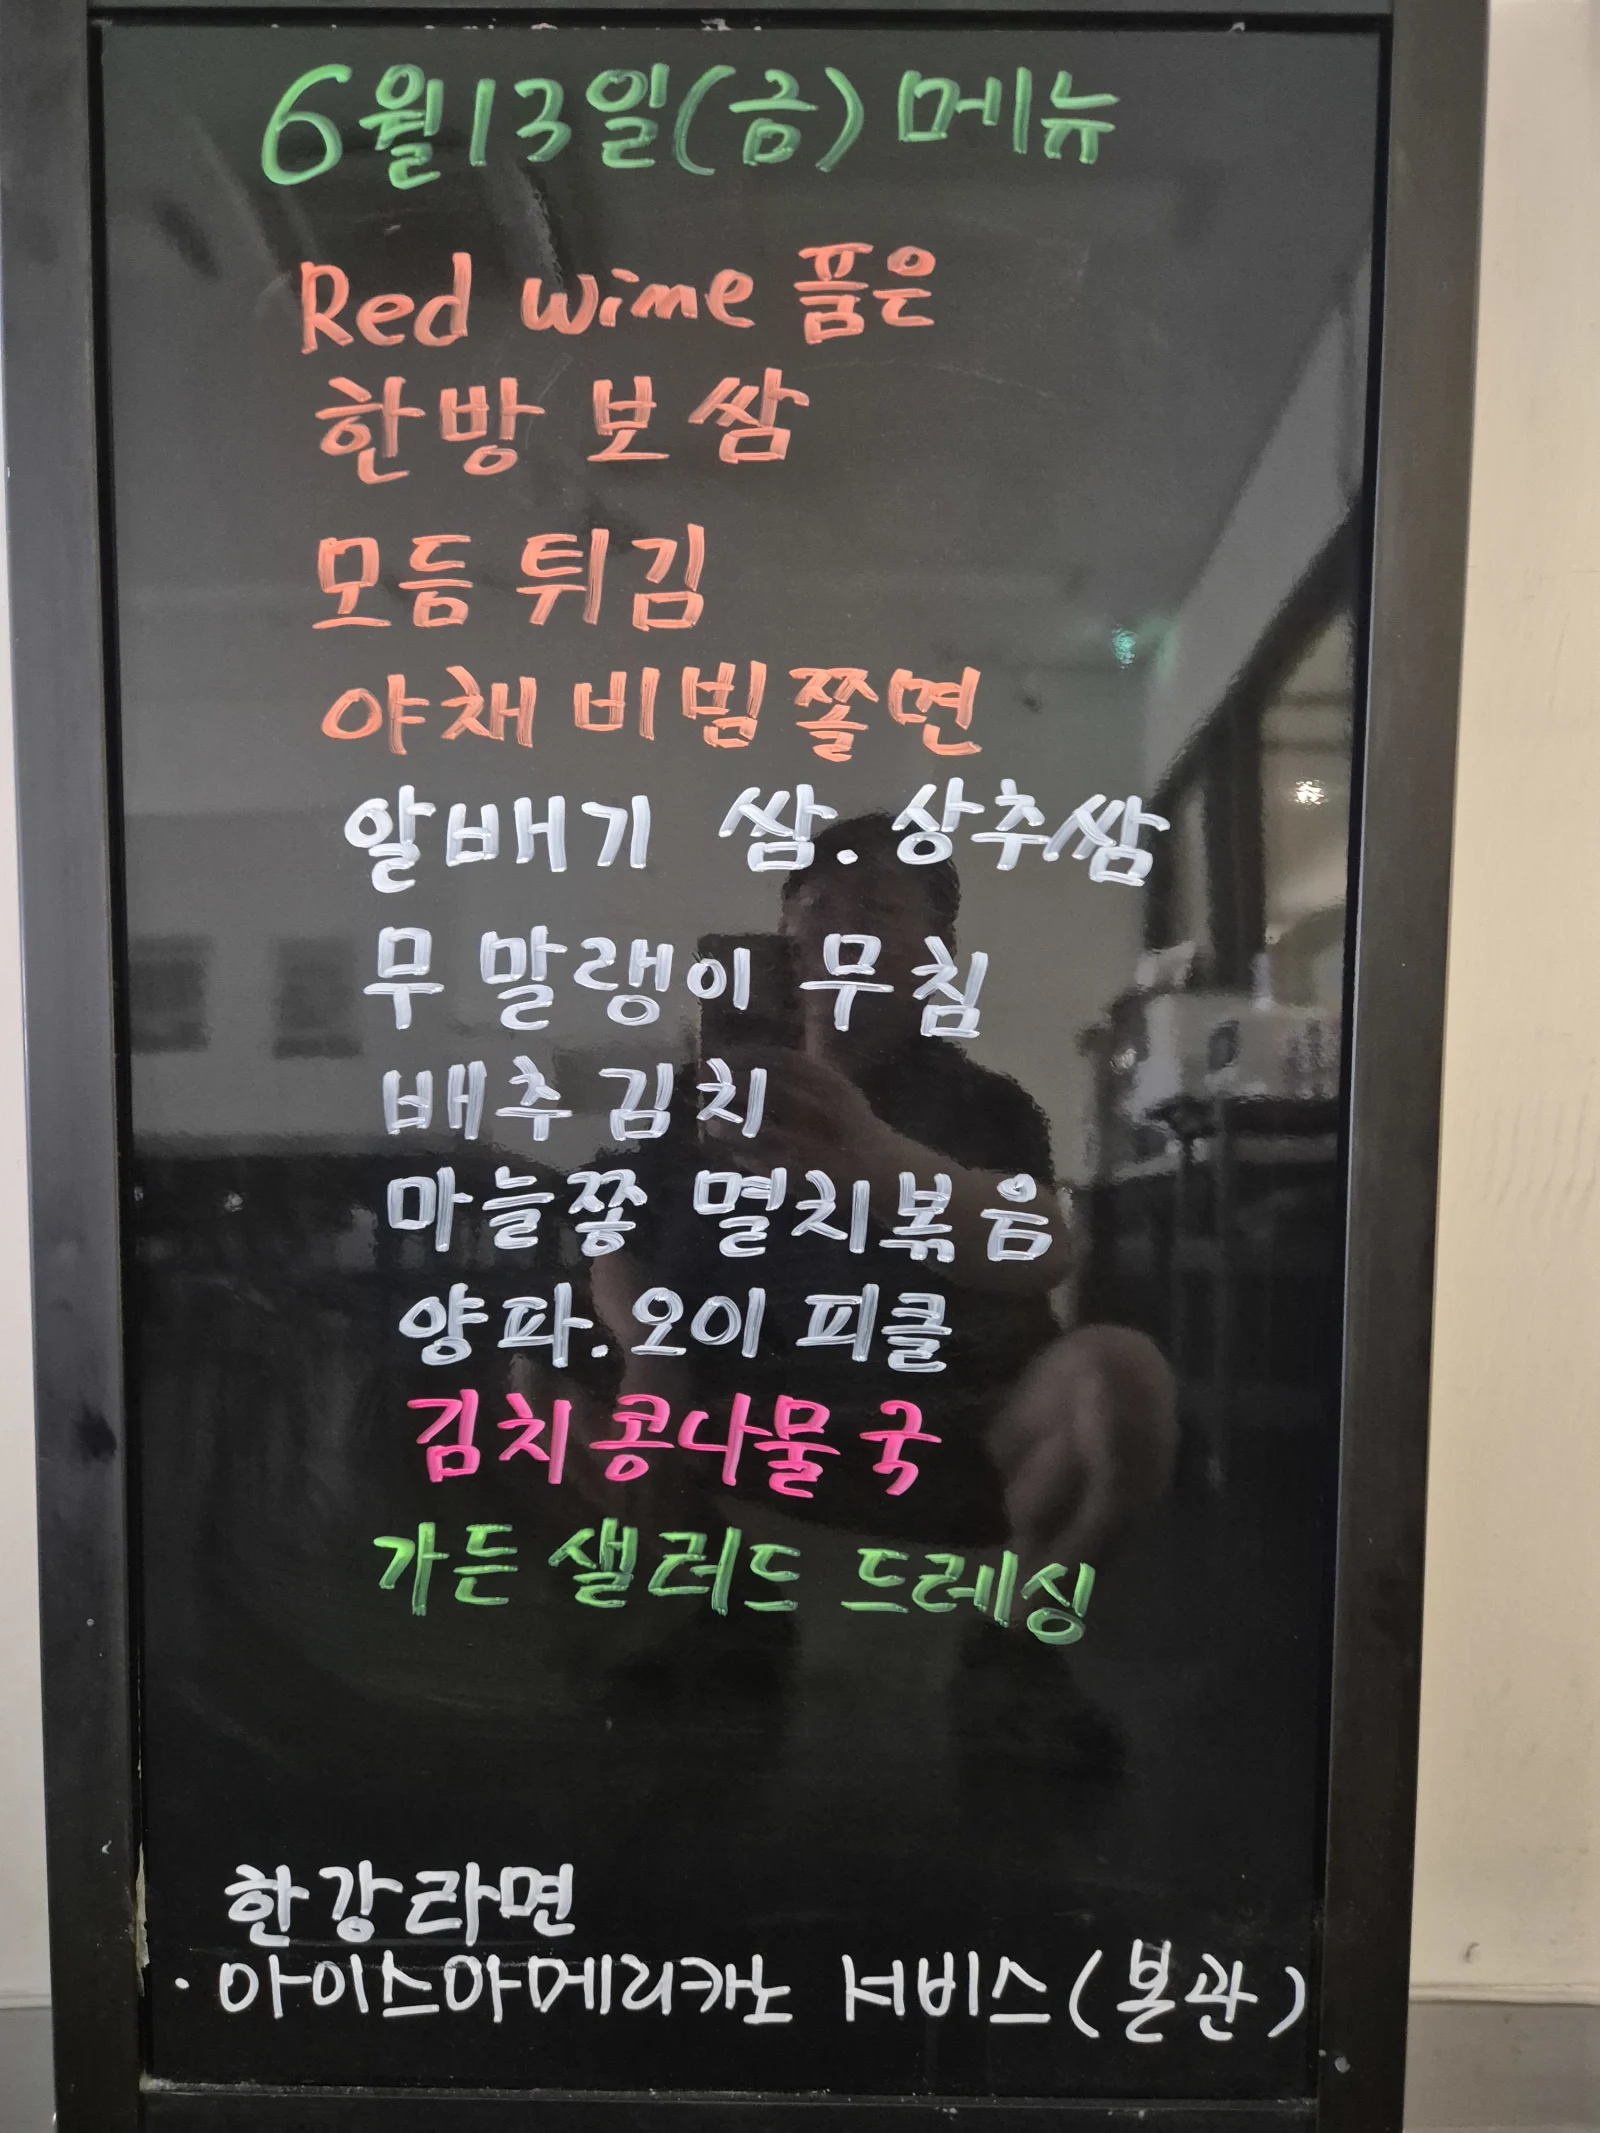 6월13일(금) 메뉴
Red wine 품은
한방 보쌈
모듬 튀김
야채 비빔쫄면
알배기 쌈.상추쌈
무말랭이 무침
배추김치
마늘쫑 멸치볶음
양파.오이 피클
김치콩나물국
가든샐러드 드레싱
한강라면
·아이스아메리카노 서비스(본관)